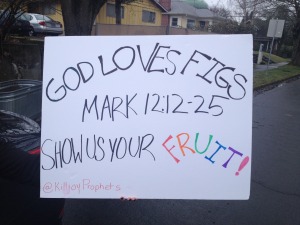 GOD LOVES FIGS
MARK 12:12-25
SHOW US YOUR FRUIT!
@KilljoyProphets